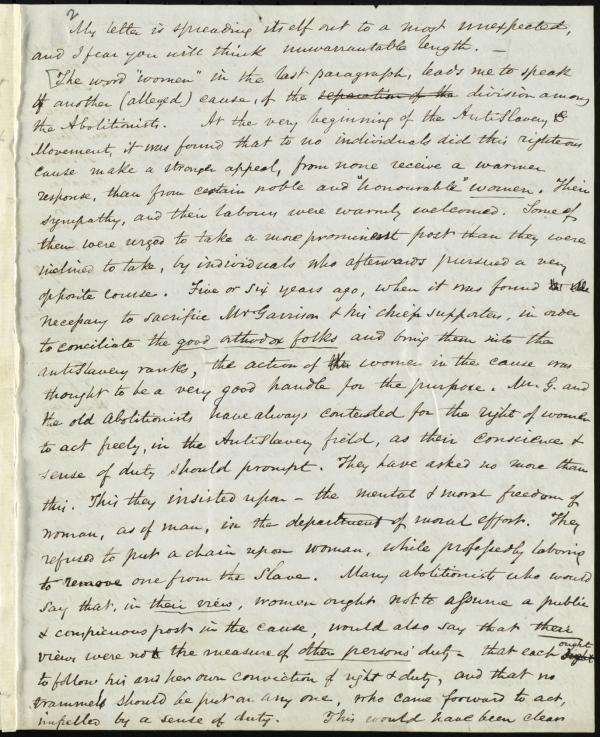 2
My letter is spreading itself out to a most unexpected,
and I fear you will think unwarrantable length. —
[The word "women" in the last paragraph, leads me to speak
of another (alleged) cause, of the separation of the division among
the Abolitionists. At the very beginning of the AntiSlavery
Movement, it was found that to no individuals did this righteous
cause make a stronger appeal, from none receive a warmer
response, than from certain noble and "honourable" women. Their
sympathy, and their labours were warmly welcomed. Some of
them were urged to take a more prominent post than they were
inclined to take, by individuals who afterwards pursued a very
opposite course. Five or six years ago, when it was found
necessary to sacrifice Mr Garrison & his chief supporters, in order
to conciliate the good orthodox folks and bring them into the
antislavery ranks, the action of the women in the cause was
thought to be a very good handle for the purpose. Mr. G. and
the old Abolitionists have always contended for the right of women
to act freely, in the AntiSlavery field, as their conscience &
sense of duty should prompt. They have asked no more than
this. This they insisted upon – the mental & moral freedom of
woman, as of man, in the department of moral effort. They
refused to put a chain upon woman, while professedly laboring
to remove one from the Slave. Many abolitionists who would
say that, in their view, women ought not to assume a public
& conspicuous post in the cause, would also say that their
views were not the measure of other persons' duty – that each ought
to follow his and her own conviction of right & duty, and that no
trammels should be put on any one, who came forward to act,
impelled by a sense of duty. This would have been clear